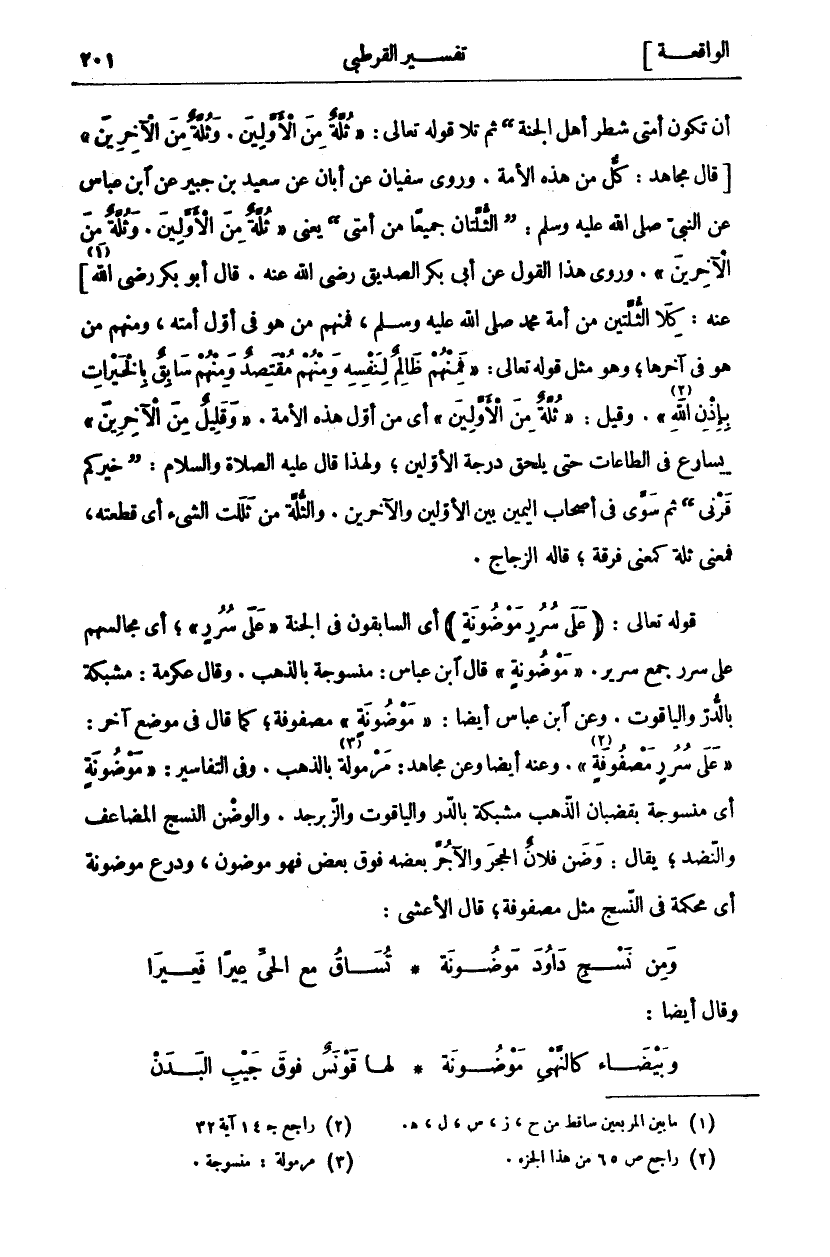 الواقعة] تفسير القرطبي ٢٠١
أن تكون أمتى شطر أهل الجنة“ ثم تلا قوله تعالى : « ثُلَّةٌ مِنَ الْأَوَّلِينَ . وَثُلَّةٌ مِنَ الْآخِرِينَ »
[ قال مجاهد : كلٌّ من هذه الأمة . وروى سفيان عن أبان عن سعيد بن جبير عن آبن عباس
عن النبيّ صلى الله عليه وسلم : ”الثُّلَّتان جميعًا من أمتى“ يعنى « ثُلَّةٌ مِنَ الْأَوَّلِينَ . وَثُلَّةٌ مِنَ
الْآخِرِينَ » . وروى هذا القول عن أبى بكر الصديق رضى الله عنه . قال أبو بكر رضى الله](١)
عنه : كِلَا الثُّلَّتين من أمة محمد صلى الله عليه وسلم ، فمنهم من هو فى أوّل أمته ، ومنهم من
هو فى آخرها ؛ وهو مثل قوله تعالى : « فَمِنْهُمْ ظَالِمٌ لِنَفْسِهِ وَمِنْهُمْ مُقْتَصِدٌ وَمِنْهُمْ سَابِقٌ بِالْخَيْرَاتِ
بِإِذْنِ اللهِ »(٢) . وقيل : « ثُلَّةٌ مِنَ الْأَوَّلِينَ » أى من أوّل هذه الأمة . « وَقَلِيلٌ مِنَ الْآخِرِينَ »
يسارع فى الطاعات حتى يلحق درجة الأوّلين ؛ ولهذا قال عليه الصلاة والسلام : ”خيركم
قَرْنى“ ثم سَوَّى فى أصحاب اليمين بين الأوّلين والآخرين . والثُّلَّة من ثَلَلت الشىء أى قطعته ،
فمعنى ثلة كمعنى فرقة ؛ قاله الزجاج .
قوله تعالى : ﴿ عَلَى سُرُرٍ مَوْضُونَةٍ ﴾ أى السابقون فى الجنة « عَلَى سُرُرٍ » ؛ أى مجالسهم
على سرر جمع سرير . « مَوْضُونةٍ » قال آبن عباس : منسوجة بالذهب . وقال عكرمة : مشبكة
بالدُّرّ والياقوت . وعن آبن عباس أيضا : « مَوْضُونَةٍ » مصفوفة ؛ كما قال فى موضع آخر :
« عَلَى سُرُرٍ مَصْفُوفَةٍ »(٢) . وعنه أيضا وعن مجاهد : مَرْمولة(٣) بالذهب . وفى التفاسير : « مَوْضُونَةٍ
أى منسوجة بقضبان الذّهب مشبكة بالدّر والياقوت والزّبرجد . والوضْن النسج المضاعف
والنّضد ؛ يقال : وَضَن فلانٌ الحجرَ والآجُرَّ بعضه فوق بعض فهو موضون ، ودرع موضونة
أى محكمة فى النّسج مثل مصفوفة ؛ قال الأعشى :
وَمِن نَسْج دَاوُدَ مَوْضُونَة * تُسَاقُ مع الحىِّ عِيرًا فَعِيرَا
وقال أيضا :
وبَيْضَاء كالنَّهْىِ مَوْضُونَة * لها قَوْنَسٌ فوقَ جَيْبِ البَدَنْ
(١) ما بين المربعين ساقط من ح ، ز ، س ، ل ، هـ. (٢) راجع جـ ١٤ آية ٣٢
(٢) راجع ص ٦٥ من هذا الجزء . (٣) مرمولة : منسوجة .